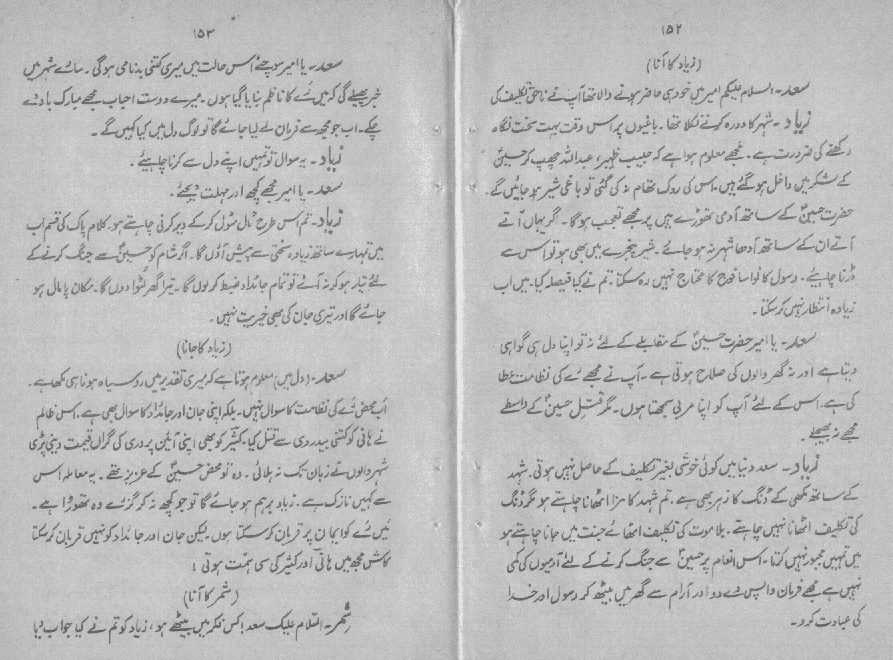 ۱۵۲
(زیاد کا آنا)
سعد۔ السلام علیکم امیر میں خود ہی حاضر ہونے والا تھا آپ نے ناحق تکلیف کی
زیاد۔ شہر کا دورہ کرنے نکلا تھا۔ باغیوں پر اس وقت بہت سخت نگاہ
رکھنے کی ضرورت ہے۔ مجھے معلوم ہوا ہے کہ حبیب ظہیر، عبداللہ چھپ کر حسینؑ
کے لشکر میں داخل ہو گئے ہیں۔ اس کی روک تھام نہ کی گئی تو باغی شیر ہو جائیں گے۔
حضرت حسینؑ کے ساتھ آدمی تھوڑے ہیں پر مجھے تعجب ہوگا۔ اگر یہاں آتے
آتے ان کے ساتھ آدھا شہر نہ ہو جائے۔ شیر پنجرے میں بھی ہو تو اس سے
ڈرنا چاہیئے۔ رسول کا نواسا فوج کا محتاج نہیں رہ سکتا۔ تم نے کیا فیصلہ کیا۔ میں اب
زیادہ انتظار نہیں کر سکتا۔
سعد۔ یا امیر حضرت حسینؑ کے مقابلے کے لئے نہ تو اپنا دل ہی گواہی
دیتا ہے اور نہ گھر والوں کی صلاح ہوتی ہے۔ آپ نے مجھے رے کی نظامت عطا
کی ہے۔ اس کے لئے آپ کو اپنا مربی سمجھتا ہوں۔ مگر قتلِ حسینؑ کے واسطے
مجھے نہ بھیجئے۔
زیاد۔ سعد دنیا میں کوئی خوشی بغیر تکلیف کے حاصل نہیں ہوتی۔ شہد
کے ساتھ مکھی کے ڈنک کا زہر بھی ہے۔ تم شہد کا مزا اٹھانا چاہتے ہو مگر ڈنک
کی تکلیف اٹھانا نہیں چاہتے۔ بلا موت کی تکلیف اٹھائے جنت میں جانا چاہتے ہو
میں تمہیں مجبور نہیں کرتا۔ اس انعام پر حسینؑ سے جنگ کرنے کے لئے آدمیوں کی کمی
نہیں ہے مجھے فرمان واپس دے دو اور آرام سے گھر میں بیٹھ کر رسول اور خدا
کی عبادت کرو۔
۱۵۳
سعد۔ یا امیر سوچئے اس حالت میں میری کتنی بدنامی ہوگی۔ سارے شہر میں
خبر پھیلے گی کہ میں رے کا ناظم بنایا گیا ہوں۔ میرے دوست احباب مجھے مبارک باد دے
چکے۔ اب جو مجھ سے فرمان لے لیا جائے گا تو لوگ دل میں کیا کہیں گے۔
زیاد۔ یہ سوال تو تمہیں اپنے دل سے کرنا چاہیئے۔
سعد۔ یا امیر مجھے کچھ اور مہلت دیجئے۔
زیاد۔ تم اس طرح ٹال مٹول کر کے دیر کرنی چاہتے ہو۔ کلام پاک کی قسم اب
میں تمہارے ساتھ زیادہ سختی سے پیش آؤں گا۔ اگر شام کو حسینؑ سے جنگ کرنے کے
لئے تیار ہو کر نہ آئے تو تمام جائداد ضبط کر لوں گا۔ تیرا گھر لٹوا دوں گا۔ مکان پامال ہو
جائے گا اور تیری جان کی بھی خیریت نہیں۔
(زیاد کا جانا)
سعد۔ (دل میں) معلوم ہوتا ہے کہ میری تقدیر میں روسیاہ ہونا ہی لکھا ہے۔
اب محض رے کی نظامت کا سوال نہیں۔ بلکہ اپنی جان اور جائداد کا سوال بھی ہے۔ اس ظالم
نے ہانی کو کتنی بیدردی سے قتل کیا۔ کثیر کو بھی اپنی آئین پروری کی گراں قیمت دینی پڑی
شہر والوں نے زبان تک نہ ہلائی۔ وہ تو محض حسینؑ کے عزیز تھے۔ یہ معاملہ اس
سے کہیں نازک ہے۔ زیاد برہم ہو جائے گا تو جو کچھ نہ کر گزرے وہ تھوڑا ہے۔
میں رے کو ایمان پر قربان کر سکتا ہوں۔ لیکن جان اور جائداد کو نہیں قربان کر سکتا
کاش مجھ میں ہانی اور کثیر کی سی ہمت ہوتی!
(شمر کا آنا)
شمر۔ السّلام علیک سعد! کس فکر میں بیٹھے ہو، زیاد کو تم نے کیا جواب دیا